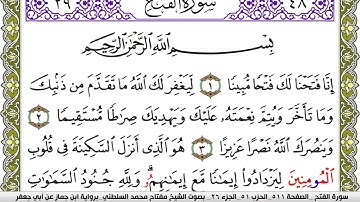 ٤٨ سُورَةُ الفَتْحِ ٢٩
بِسْمِ اللَّهِ الرَّحْمَٰنِ الرَّحِيمِ
إِنَّا فَتَحْنَا لَكَ فَتْحًا مُّبِينًا ١ لِّيَغْفِرَ لَكَ اللَّهُ مَا تَقَدَّمَ مِن ذَنۢبِكَ
وَمَا تَأَخَّرَ وَيُتِمَّ نِعْمَتَهُۥ عَلَيْكَ وَيَهْدِيَكَ صِرَٰطًا مُّسْتَقِيمًا ٢
وَيَنصُرَكَ اللَّهُ نَصْرًا عَزِيزًا ٣ هُوَ الَّذِي أَنزَلَ السَّكِينَةَ فِي قُلُوبِ
الْمُومِنِينَ لِيَزْدَادُوا إِيمَٰنًا مَّعَ إِيمَٰنِهِمُۥ وَلِلَّهِ جُنُودُ السَّمَٰوَٰتِ
سورة الفتح . الصفحة ٥١١ . الحزب ٥١ . الجزء ٢٦ . بصوت الشيخ مفتاح محمد السلطني . برواية ابن جماز عن أبي جعفر